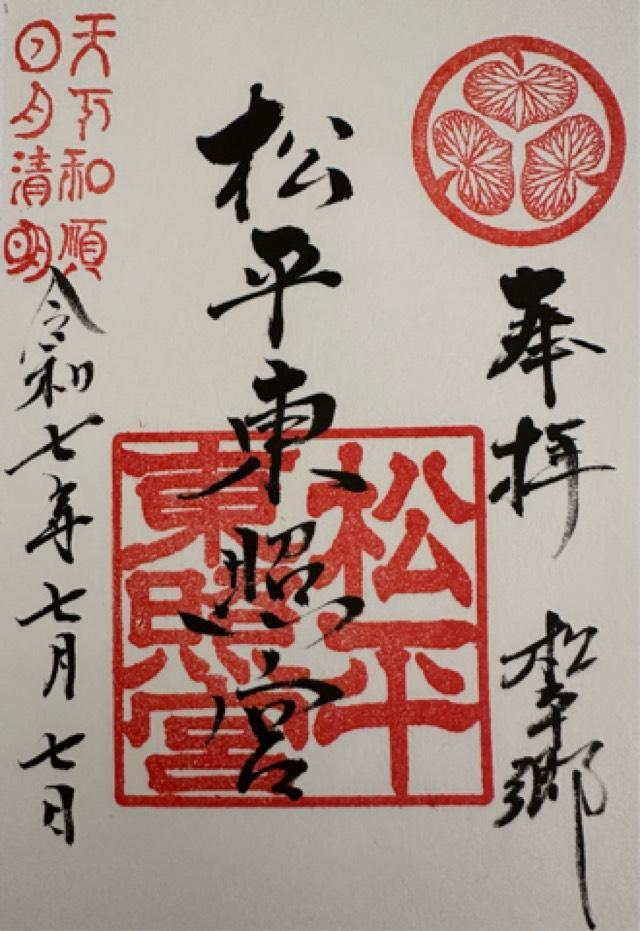 奉拝
松平郷
松平東照宮
松平
東照宮
天下和順
日月清明
令和七年七月七日